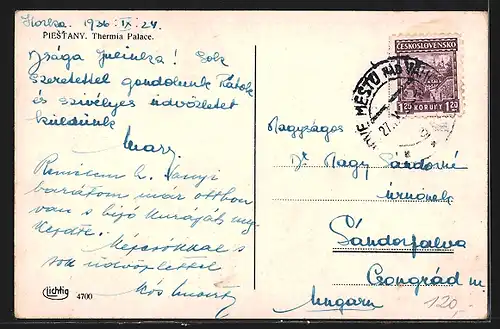 Horka. 1936 IX 24.
PIEŠŤANY. Thermia Palace.
Drága Julinka! Sok
szeretettel gondolunk Rátok
és szivélyes üdvözletet
küldünk
barátom már otthon
van s
Kézcsókkal s
sok üdvözlettel
Lichtig 4700
ČESKOSLOVENSKO
1.20 KORUNY 1.20
NOVÉ MĚSTO NAD VÁHOM
27.
Nagyságos
Dr Nagy Sándorné
úrnőnek
Sándorfalva
Csongrád m.
Ungarn
120,-